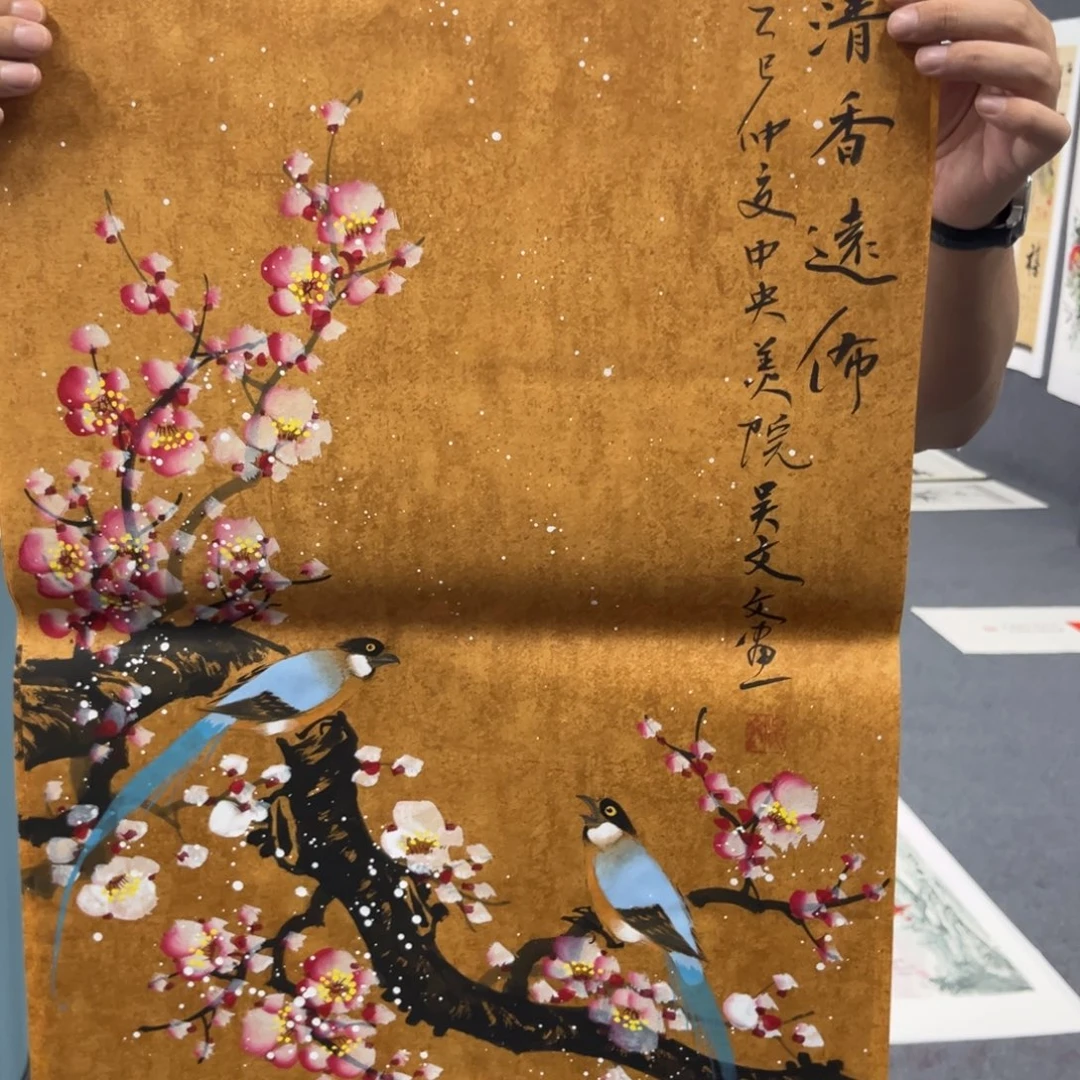 清香遠佈
乙巳仲夏中央美院吴文文畫